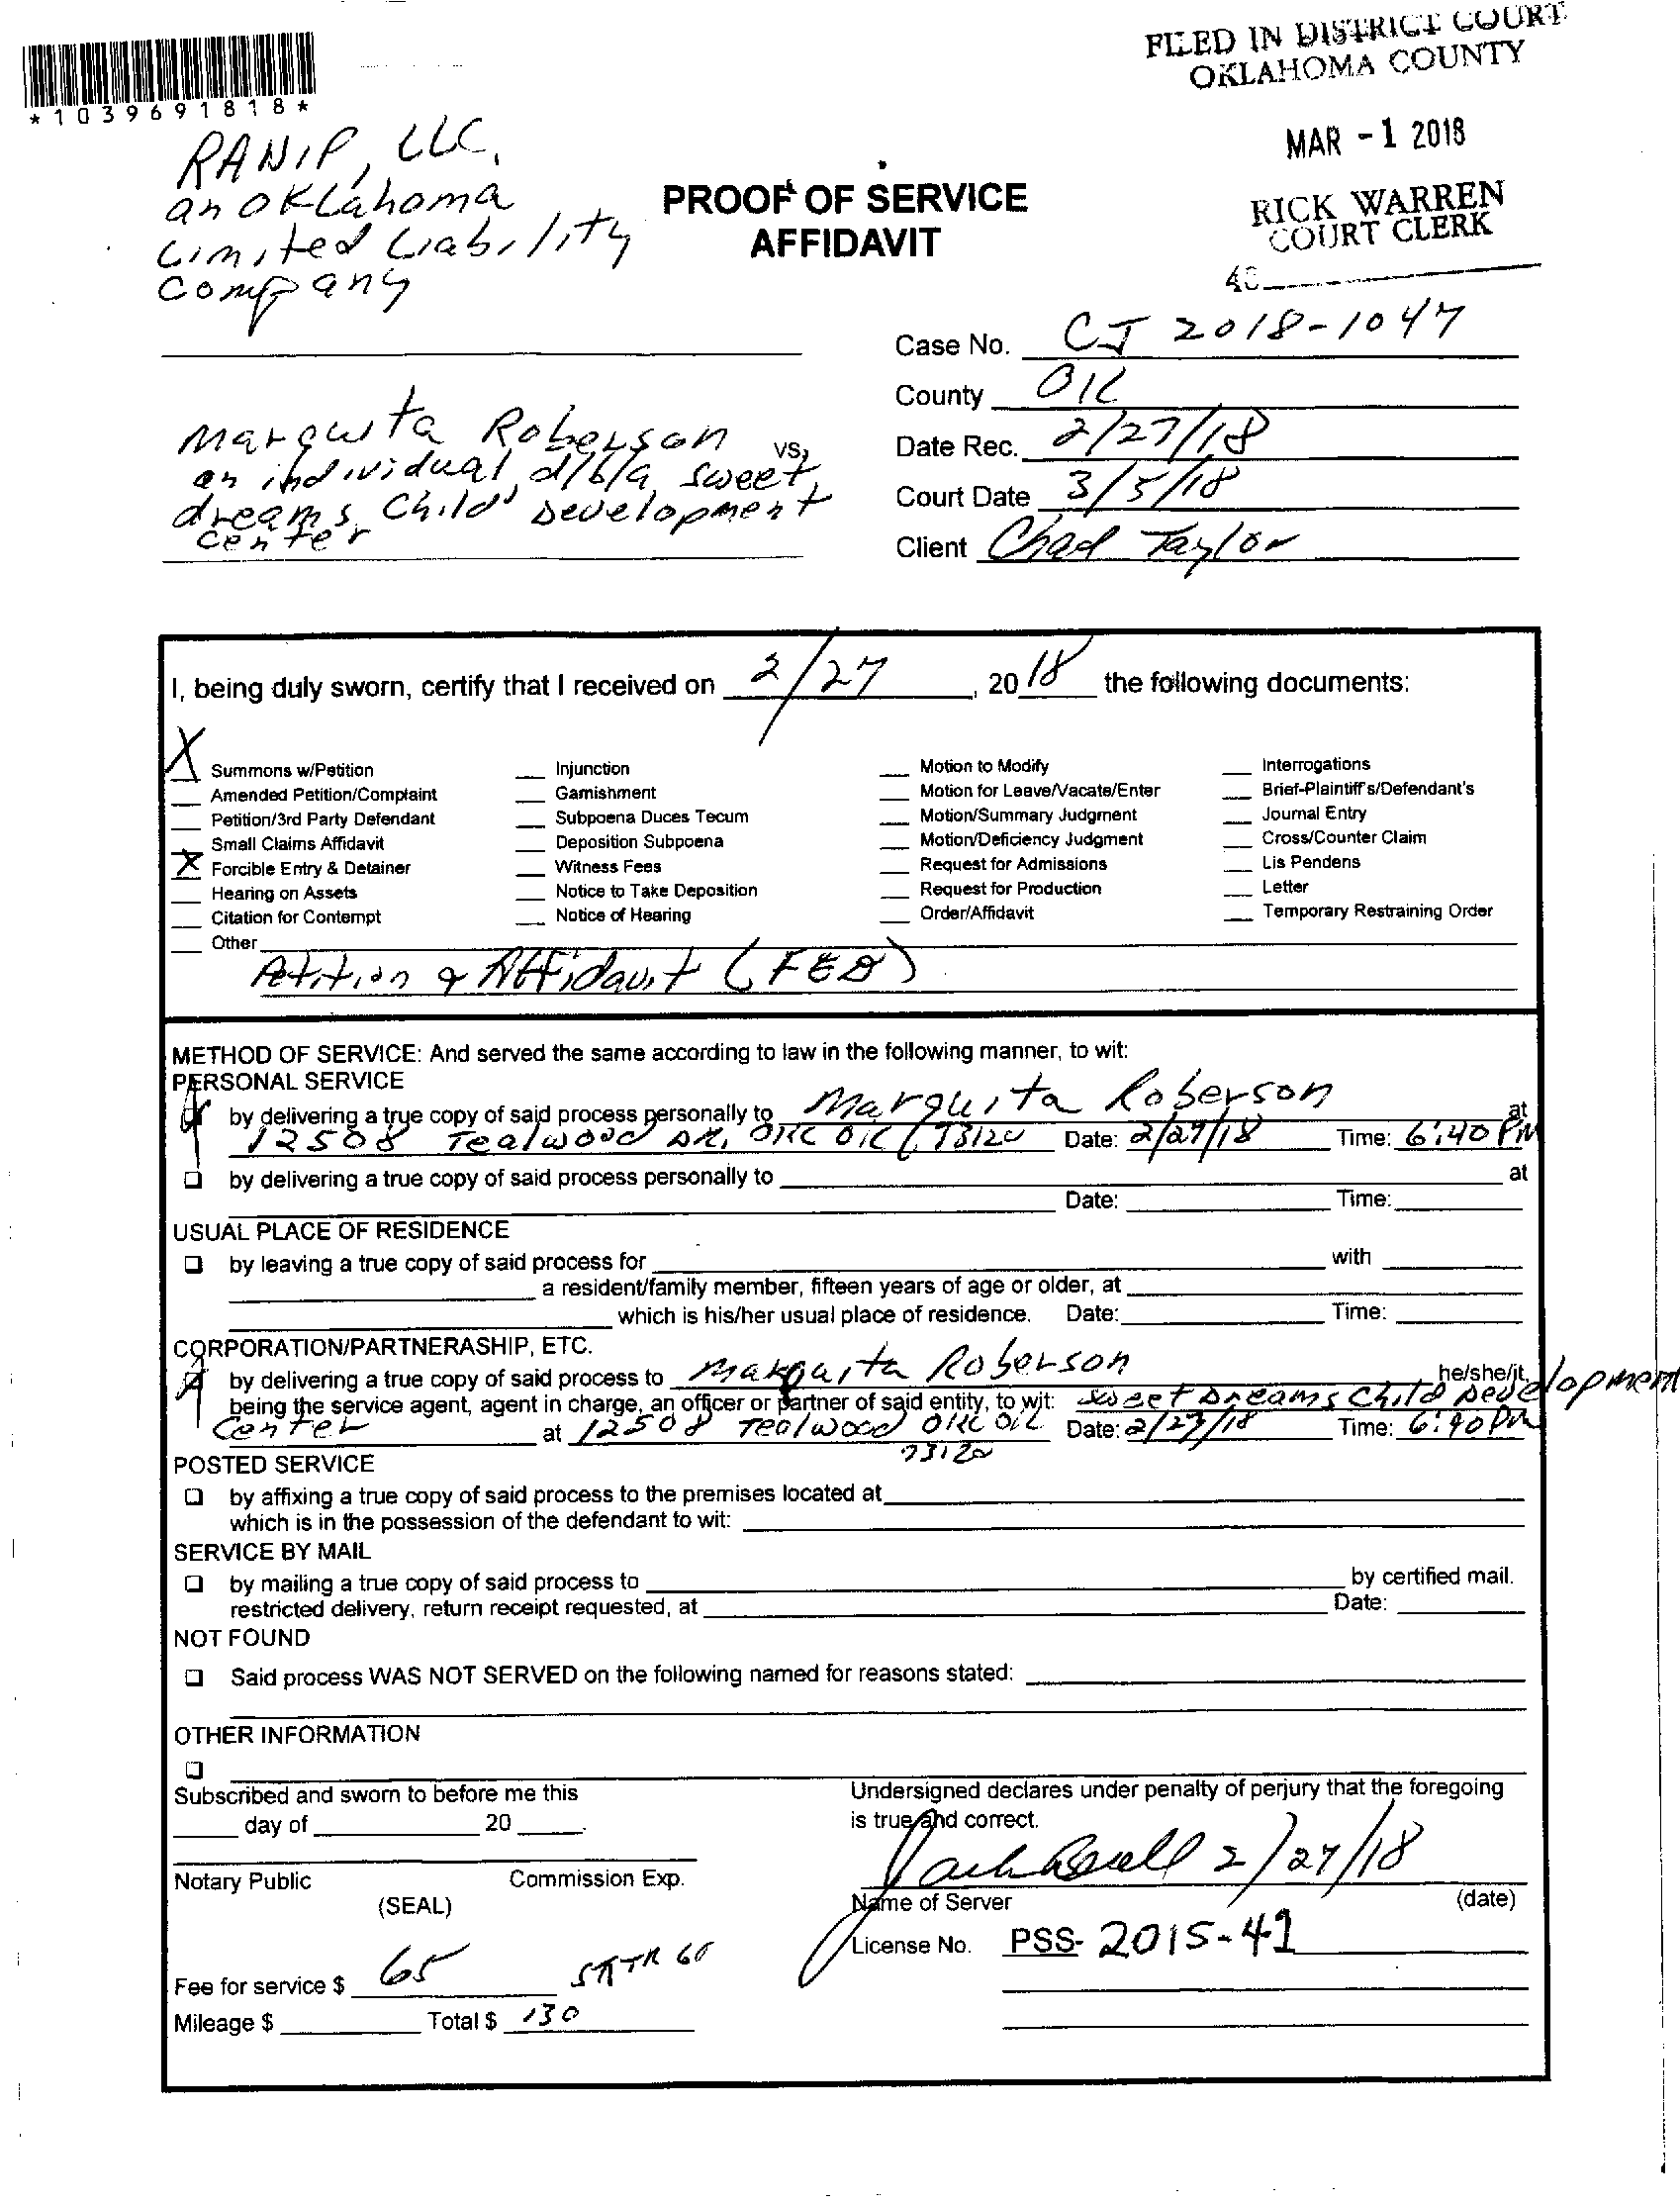 FILED IN DISTRICT COURT
OKLAHOMA COUNTY
*1039691818*
MAR -1 2018
RICK WARREN
COURT CLERK
RANIP, LLC,
an OKLahoma
Limited Liability
Company
PROOF OF SERVICE
AFFIDAVIT
Case No. CJ 2018-1047
County OK
Date Rec. 2/27/18
Court Date 3/5/18
Client Chad Taylor
Marquita Roberson vs,
an individual, d/b/a sweet
dreams Child Development
center
I, being duly sworn, certify that I received on 2/27, 2018 the following documents:
X Summons w/Petition
Amended Petition/Complaint
Petition/3rd Party Defendant
Small Claims Affidavit
X Forcible Entry & Detainer
Hearing on Assets
Citation for Contempt
Other
Injunction
Garnishment
Subpoena Duces Tecum
Deposition Subpoena
Witness Fees
Notice to Take Deposition
Notice of Hearing
Motion to Modify
Motion for Leave/Vacate/Enter
Motion/Summary Judgment
Motion/Deficiency Judgment
Request for Admissions
Request for Production
Order/Affidavit
Interrogations
Brief-Plaintiff's/Defendant's
Journal Entry
Cross/Counter Claim
Lis Pendens
Letter
Temporary Restraining Order
Petition & Affidavit (FED)
METHOD OF SERVICE: And served the same according to law in the following manner, to wit:
PERSONAL SERVICE
by delivering a true copy of said process personally to Marquita Roberson at
12508 Tealwood DR, OKC OK 73120 Date: 2/27/18 Time: 6:40 PM
by delivering a true copy of said process personally to at
Date: Time:
USUAL PLACE OF RESIDENCE
by leaving a true copy of said process for with
a resident/family member, fifteen years of age or older, at
which is his/her usual place of residence. Date: Time:
CORPORATION/PARTNERASHIP, ETC.
by delivering a true copy of said process to Marquita Roberson he/she/it,
being the service agent, agent in charge, an officer or partner of said entity, to wit: Sweet Dreams Child Development
Center at 12508 Tealwood OKC OK Date: 2/27/18 Time: 6:40 PM
73120
POSTED SERVICE
by affixing a true copy of said process to the premises located at
which is in the possession of the defendant to wit:
SERVICE BY MAIL
by mailing a true copy of said process to by certified mail.
restricted delivery, return receipt requested, at Date:
NOT FOUND
Said process WAS NOT SERVED on the following named for reasons stated:
OTHER INFORMATION
Subscribed and sworn to before me this
day of 20 .
Notary Public Commission Exp.
(SEAL)
Undersigned declares under penalty of perjury that the foregoing
is true and correct.
2/27/18
Name of Server (date)
License No. PSS- 2015-41
Fee for service $ 65
Mileage $ Total $ 130